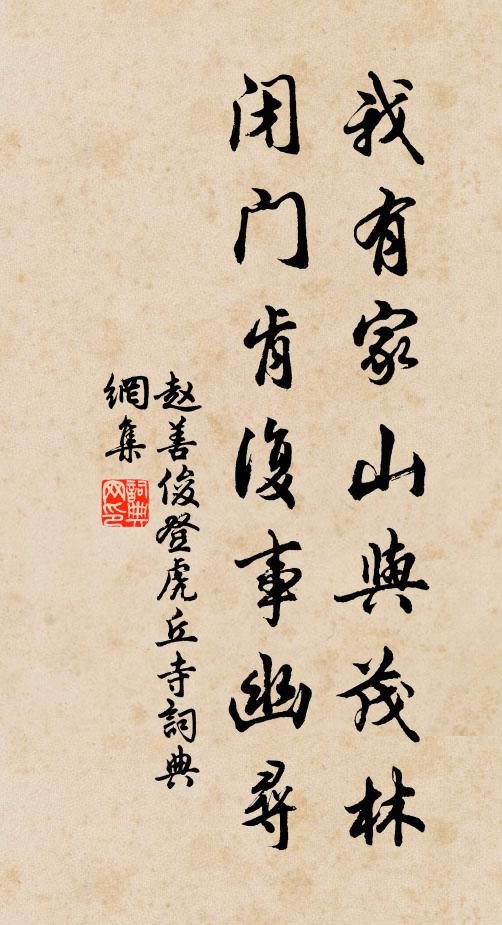 我有家山與茂林
閉門肯復事幽尋
赵善俊登虎丘寺詞典
網集
詞典
网印